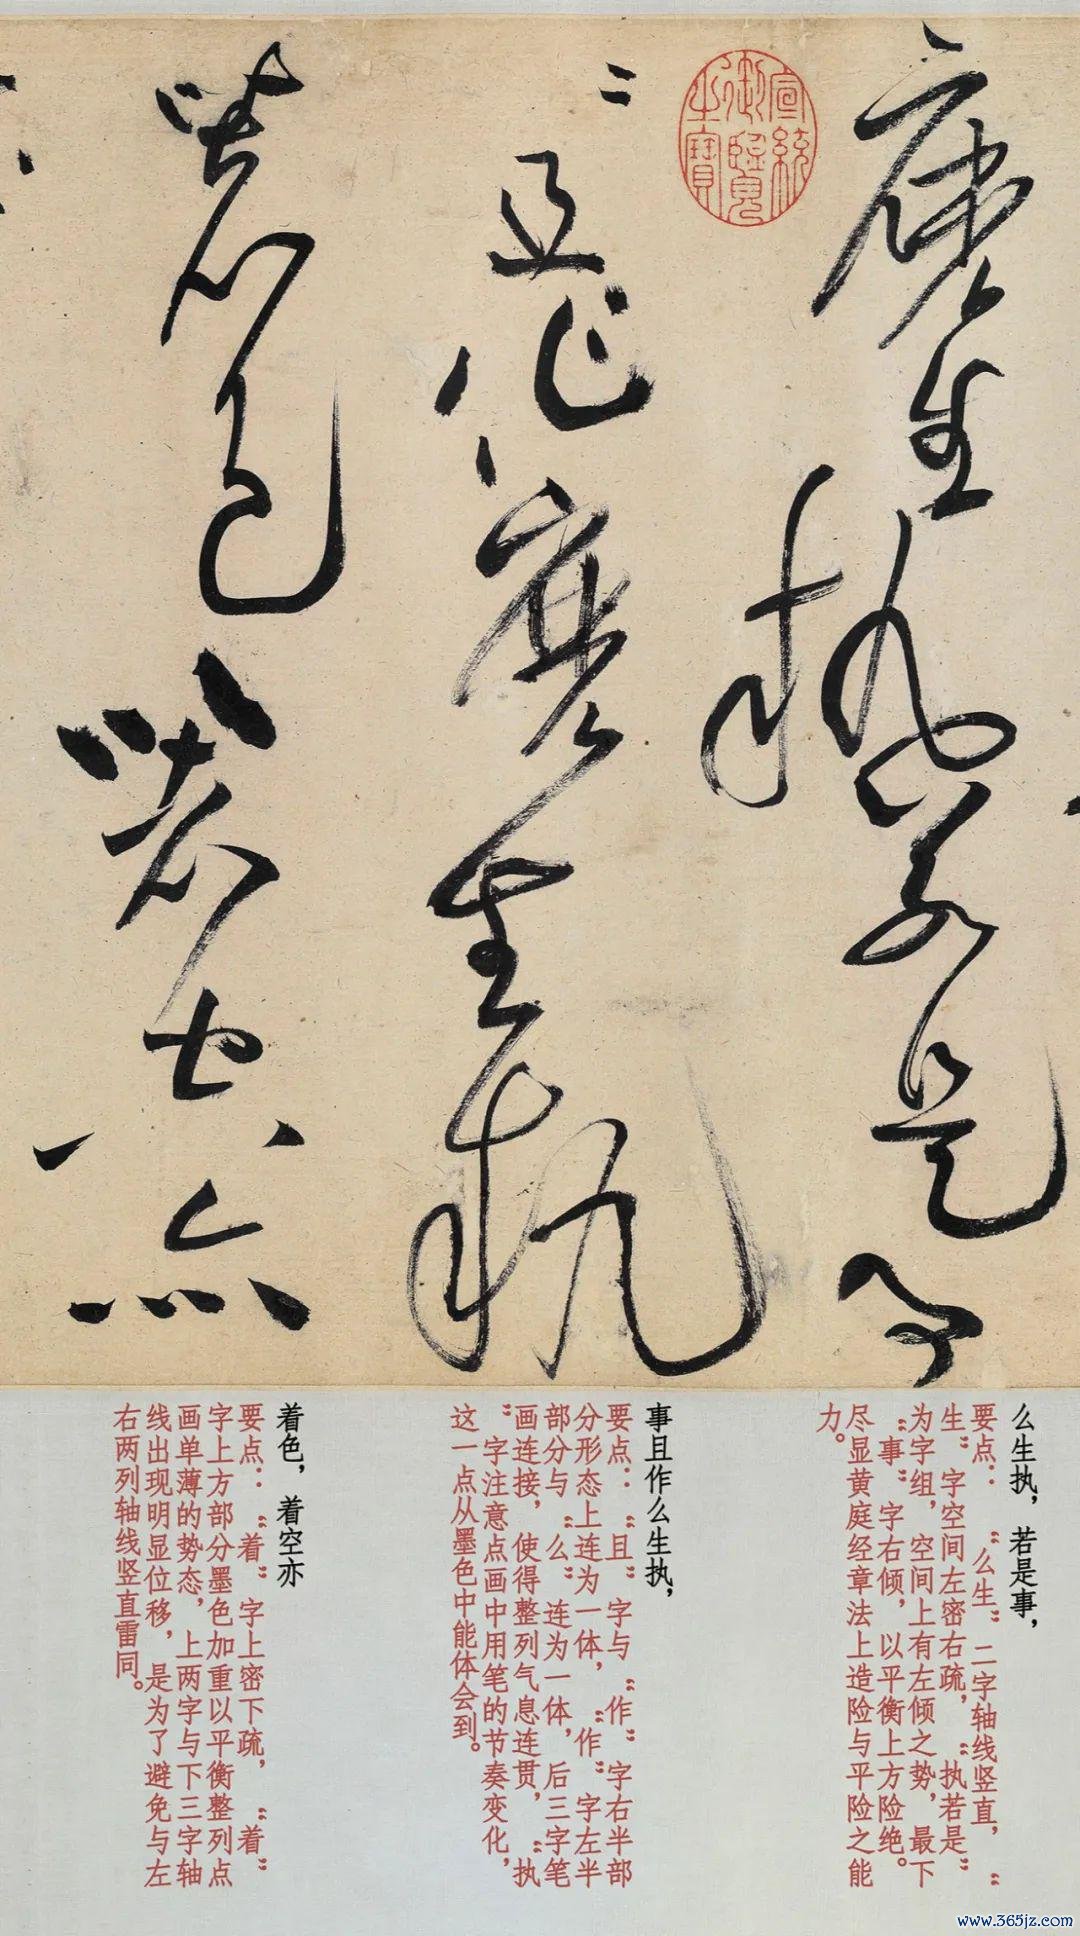 麽生執若是事
宣統御覽之寶
〻且作麽生執
著色著空亦
么生执,若是事,
要点:“么生”二字轴线竖直,“
生”字空间左密右疏,“执若是”
为字组,空间上有左倾之势,最下
“事”字右倾,以平衡上方险绝。
尽显黄庭经章法上造险与平险之能
力。
事且作么生执,
要点:“且”字与“作”字右半部
分形态上连为一体,“作”字左半
部分与“么”连为一体,后三字笔
画连接,使得整列气息连贯,“执
”字注意点画中用笔的节奏变化,
这一点从墨色中能体会到。
着色,着空亦
要点:“着”字上密下疏,“着”
字上方部分墨色加重以平衡整列点
画单薄的势态,上两字与下三字轴
线出现明显位移,是为了避免与左
右两列轴线竖直雷同。
www.365jz.com